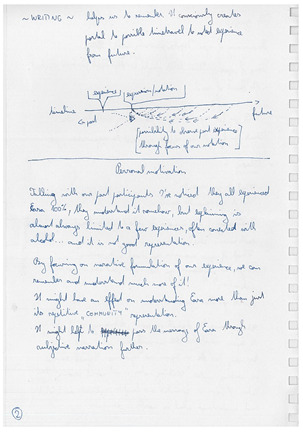 ~ WRITING ~ helps us to remember. It consciously creates
portal to possible timetravel to what experience
from future.
experience
expression/notation
timeline
future
past
possibility to share past experience
through form of our notation
Personal motivation
Talking with our past participants I've noticed they all experienced
Eura 100%, they understand it somehow, but explaining is
almost always limited to a few experiences, often connected with
alcohol... and it is not good representation.
By focusing on narrative formulation of our experience, we can
remember and understand much more of it!
It might have an effect on understanding Eura more than just
its repetitive "COMMUNITY" representation.
It might left to pass the message of Eura through
subjective narration further.
2